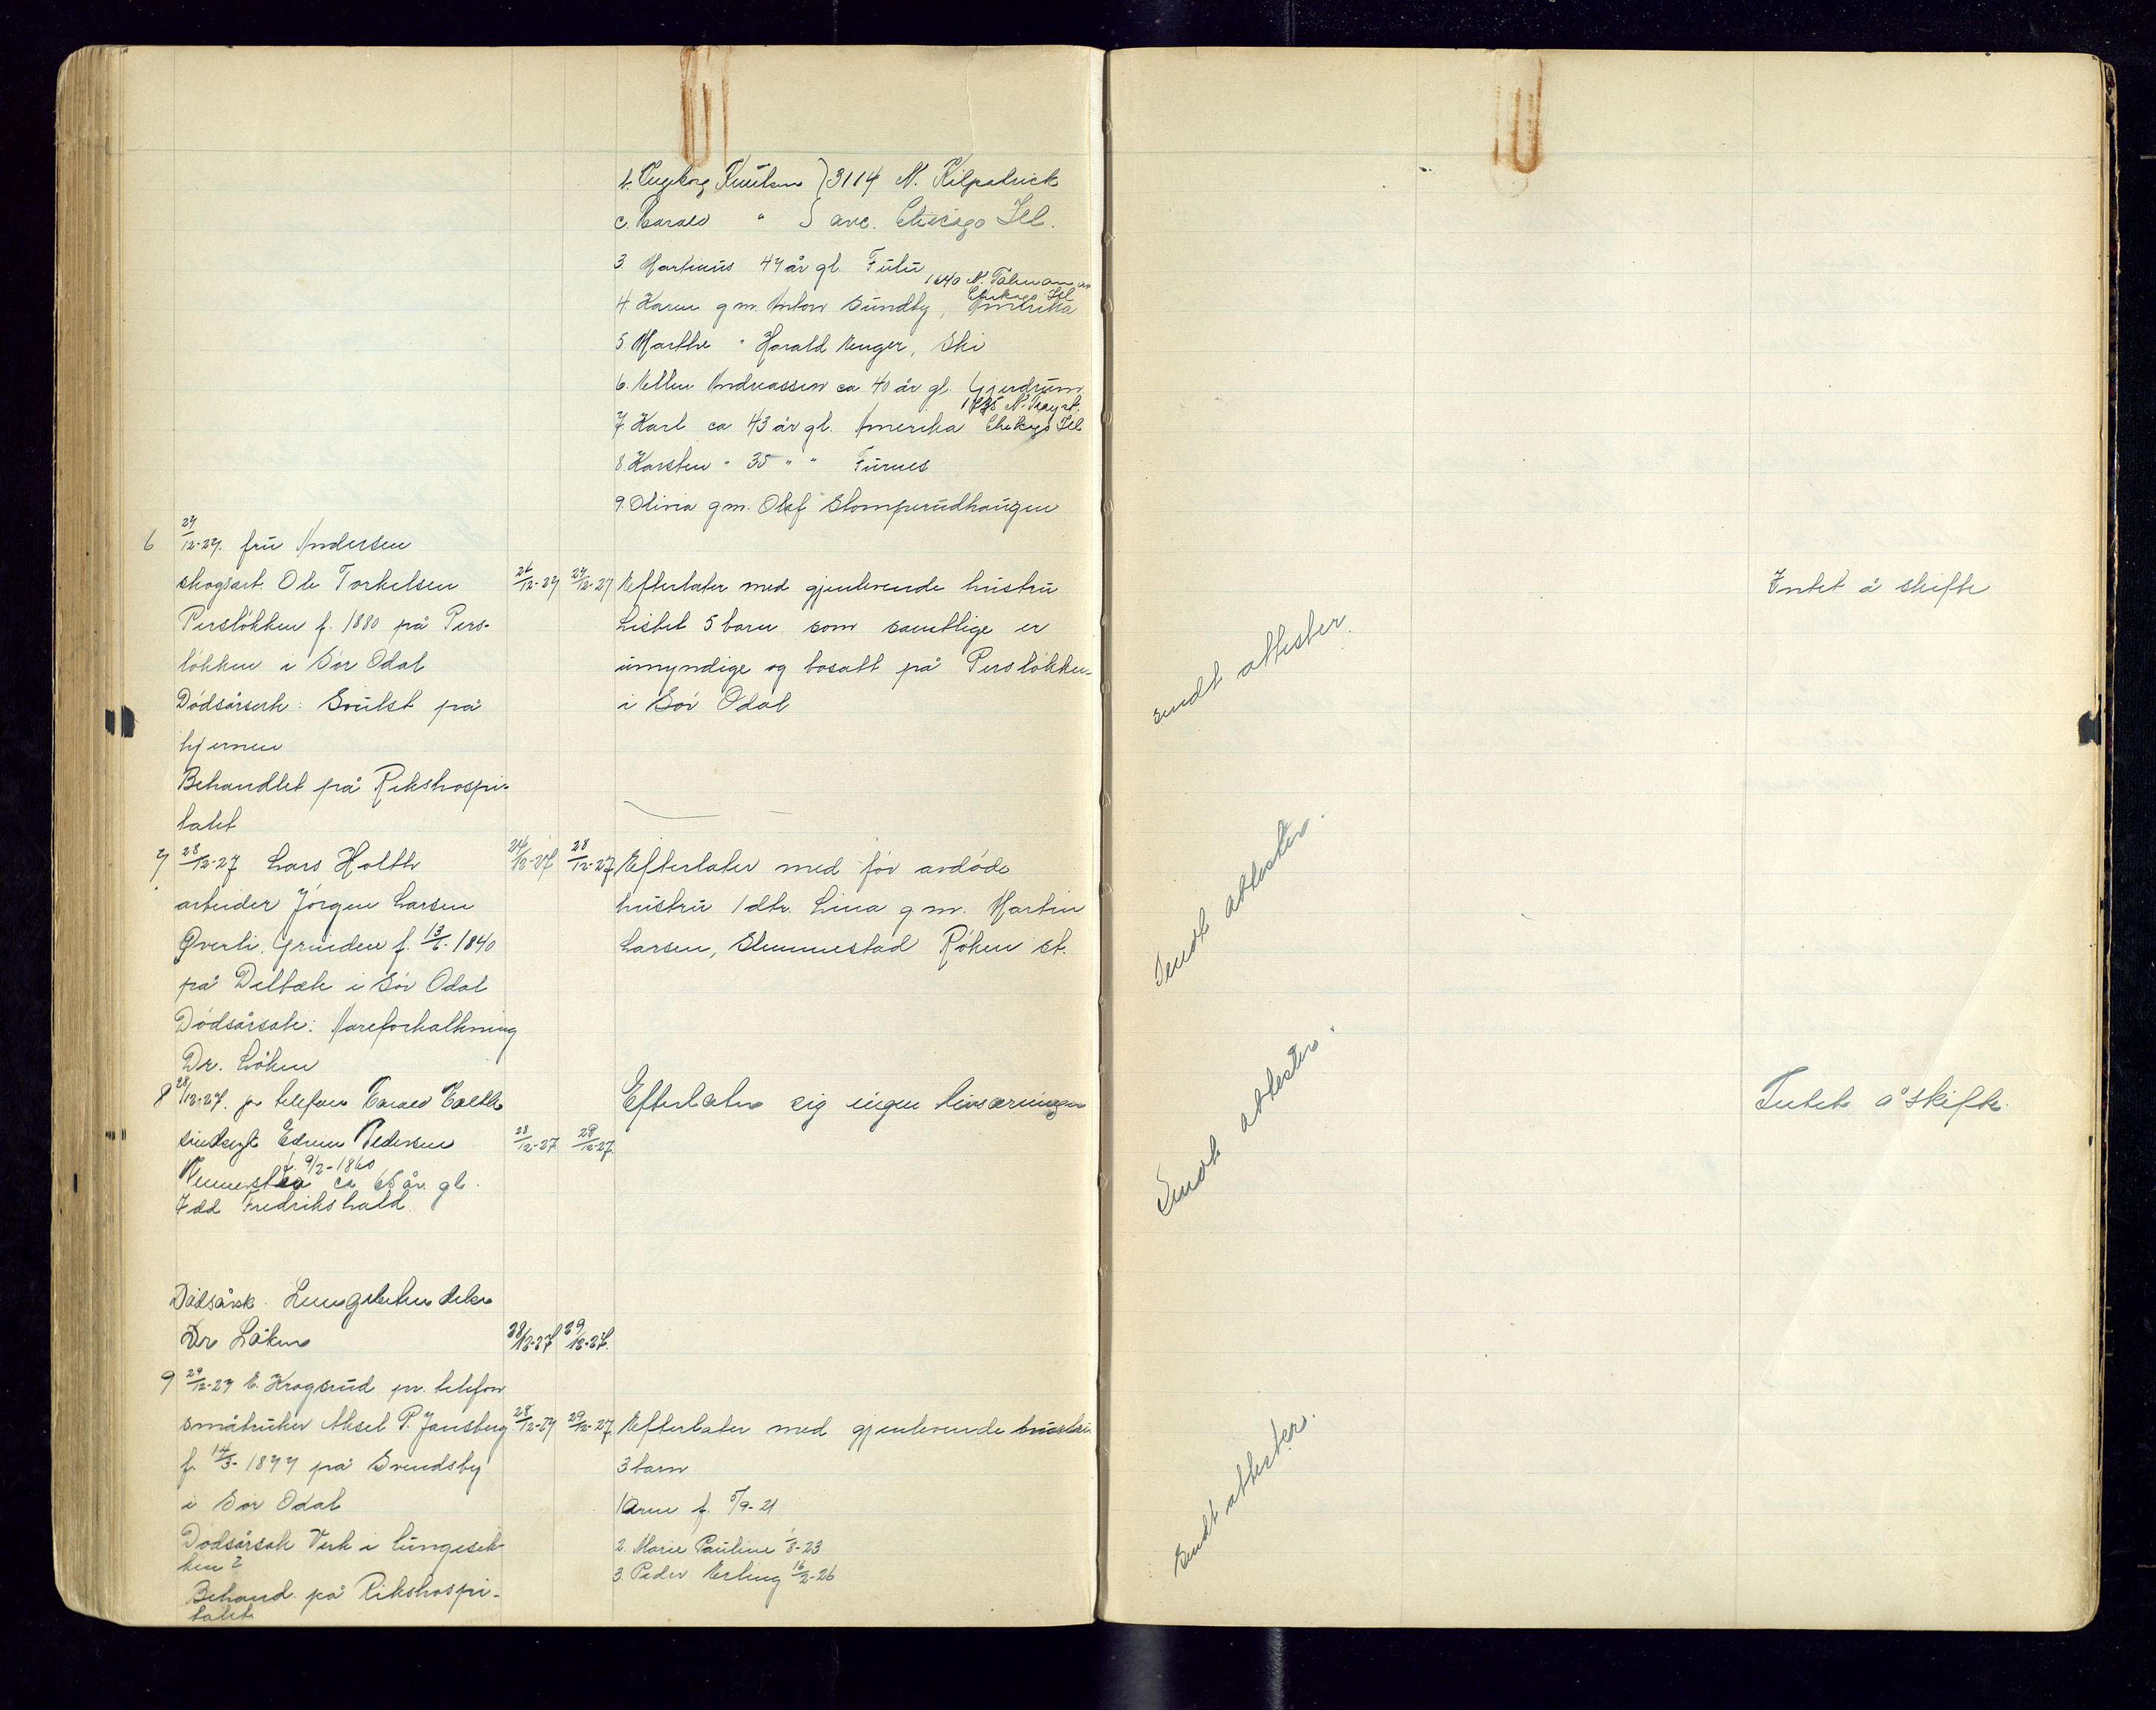 b. Ingeborg Knutsen } 3114 N. Kilpatrick
c. Harald " } ave. Chicago Ill.
3 Martinus 47 år gl. Fulu
1640 N. Talman av
Chikago Ill
4 Karen g m. Anton Sundby, Amerika
5 Marthe " Harald Enger, Ski
6. Ellen Andreassen ca 40 år gl. Gjerdrum
N. Troy st.
7 Karl ca 43 år gl. Amerika Chikago Ill
8 Karsten " 35 " " Furnes
9. Olivia gm. Olaf Slomperudhaugen
6 27/12-27. fru Andersen
skogsarb. Ole Torkelsen 26/12-27 27/12-27 Efterlater med gjenlevende hustru
Persløkken f. 1880 på Pers- Lisbet 5 barn som samtlige er
løkken i Sør Odal umyndige og bosatt på Persløkken
Dødsårsak: Svulst på i Sør Odal
hjernen
Behandlet på Rikshospi-
talet
sendt attester.
Intet å skifte
7 28/12-27 Lars Holth 24/12-27 28/12-27 Efterlater med før avdøde
arbeider Jörgen Larsen hustru 1 dtr. Lina g m. Martin
Øverli, Grinden f. 13/6-1840 Larsen, Slemmestad Røken st.
på Dilbæk i Sør Odal
Dødsårsak: Åreforkalkning
Dr. Løken
Sendt attester.
8 28/12-27. pr telefon Harald Holth Efterlater sig ingen livsarvinger
Edvin Pedersen 28/12-27 29/12-27.
f. 9/2-1860
ca 65 år gl.
Idd Fredrikshald
Dødsårsk. Lungebetendelse
Dr Løken 28/12-27 29/12-27.
Sendt attester.
Intet å skifte.
9 29/12-27 E. Krogsrud pr. telefon
småbruker Aksel P. Jansberg 28/12-27 29/12-27 Efterlater med gjenlevende hustru
f. 14/3-1877 på Svendsby 3 barn
i Sør Odal 1 Arne f. 5/9-21
Dødsårsak Verk i lungesek- 2. Marie Pauline 1/8-23
ken? 3. Peder Erling 16/2-26
Behand. på Rikshospi-
talet
Sendt attester.